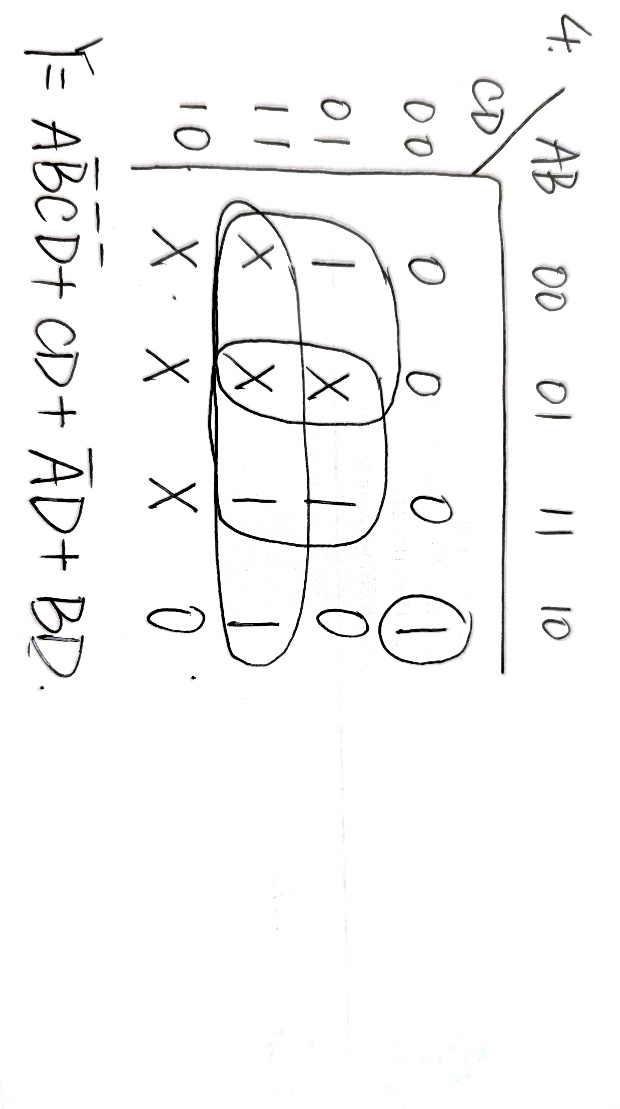 4.
AB
CD 00 01 11 10
00 0 0 0 1
01 1 X 1 0
11 X X 1 1
10 X X X 0
Y = AB̅C̅D̅ + CD + A̅D + BD.